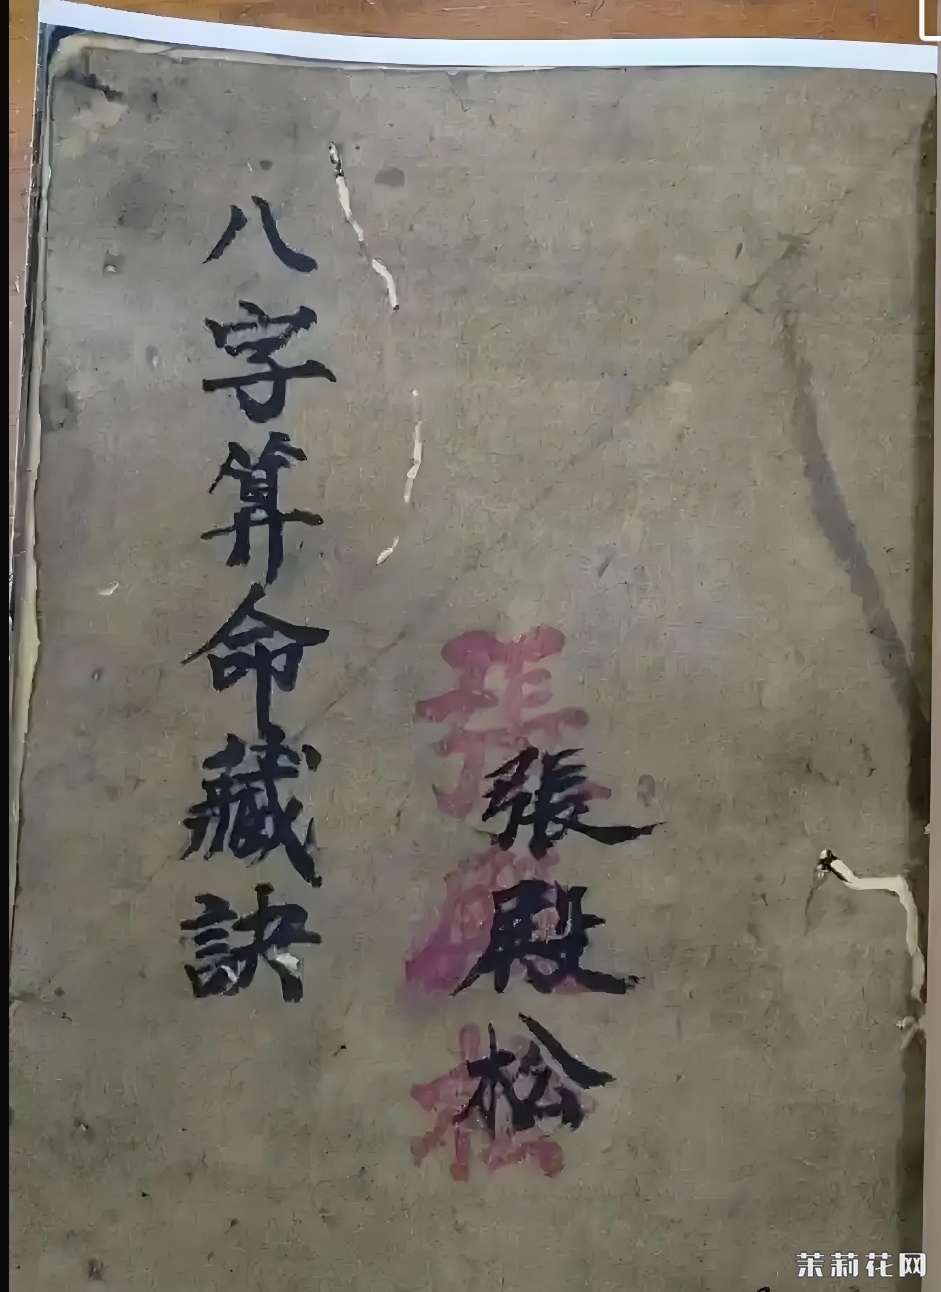 八字算命藏訣
張殿松
茉莉花网